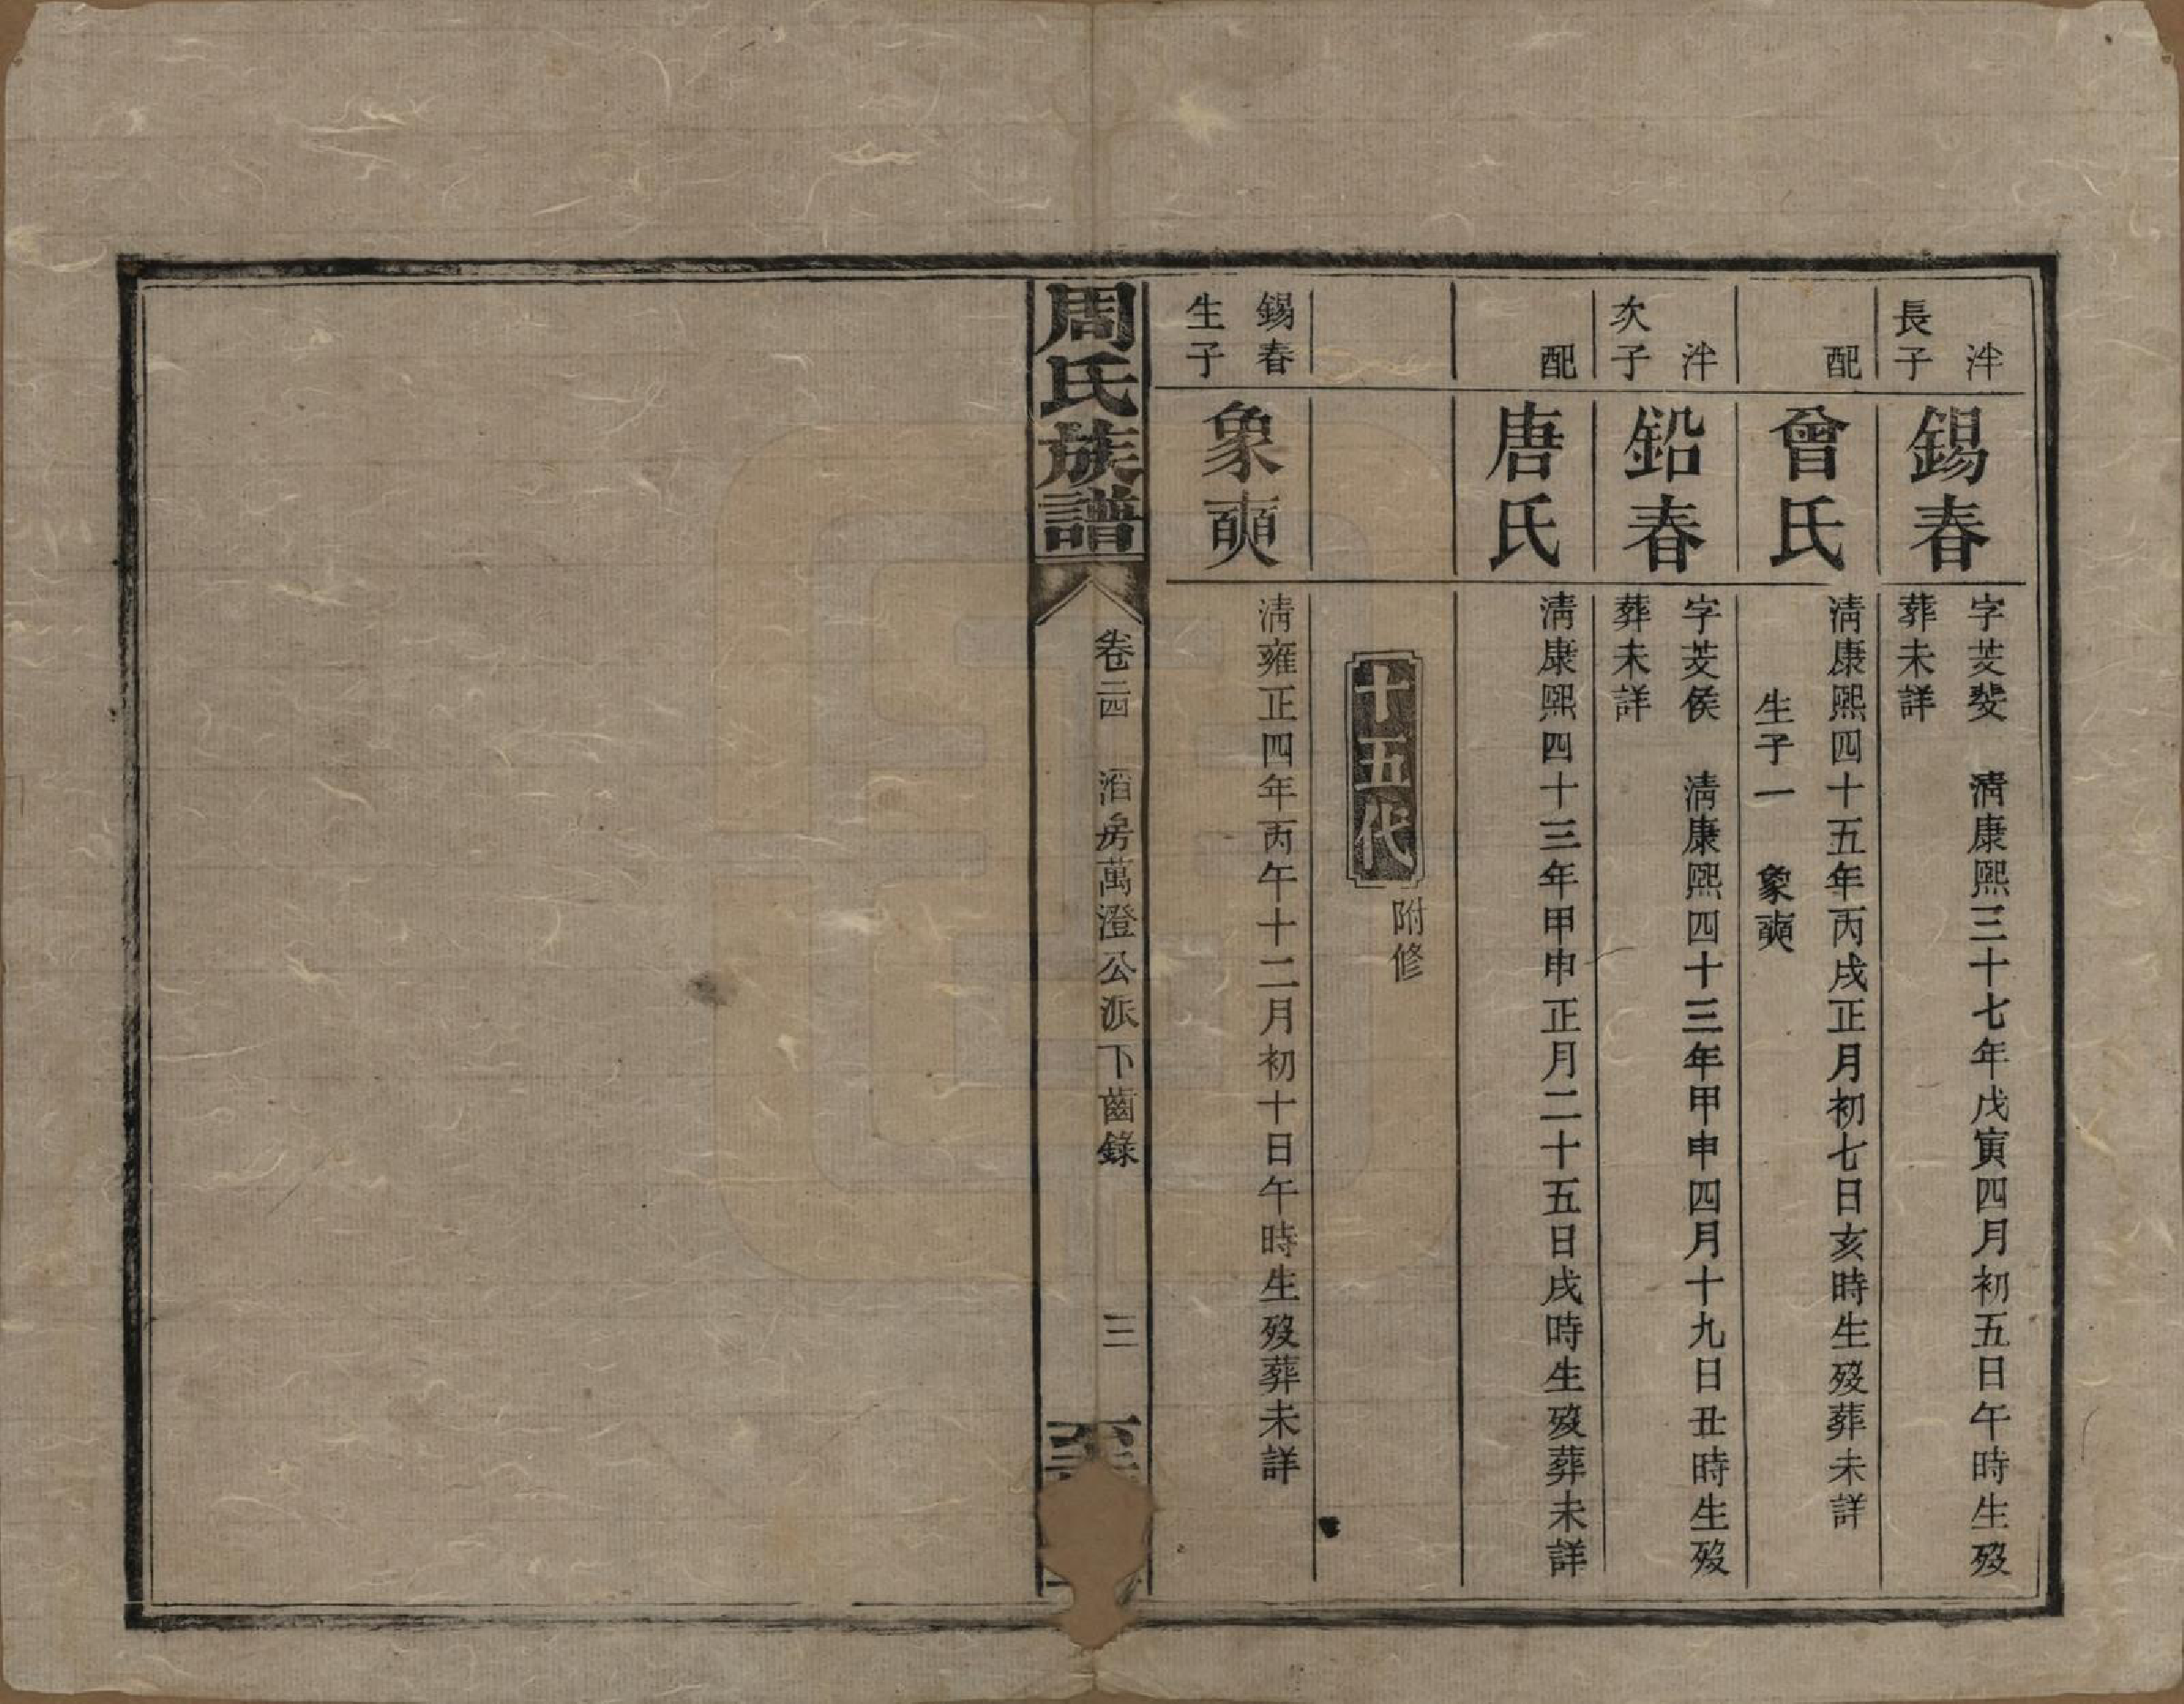 泮長子
錫春
字芰斐　清康熙三十七年戊寅四月初五日午時生歿
葬未詳
配
曾氏
清康熙四十五年丙戌正月初七日亥時生歿葬未詳
生子一　象奭
泮次子
鉛春
字芰侯　清康熙四十三年甲申四月十九日丑時生歿
葬未詳
配
唐氏
清康熙四十三年甲申正月二十五日戌時生歿葬未詳
十五代
附修
錫春生子
象奭
清雍正四年丙午十二月初十日午時生歿葬未詳
周氏族譜
卷二四　滔房萬澄公派下齒錄　三